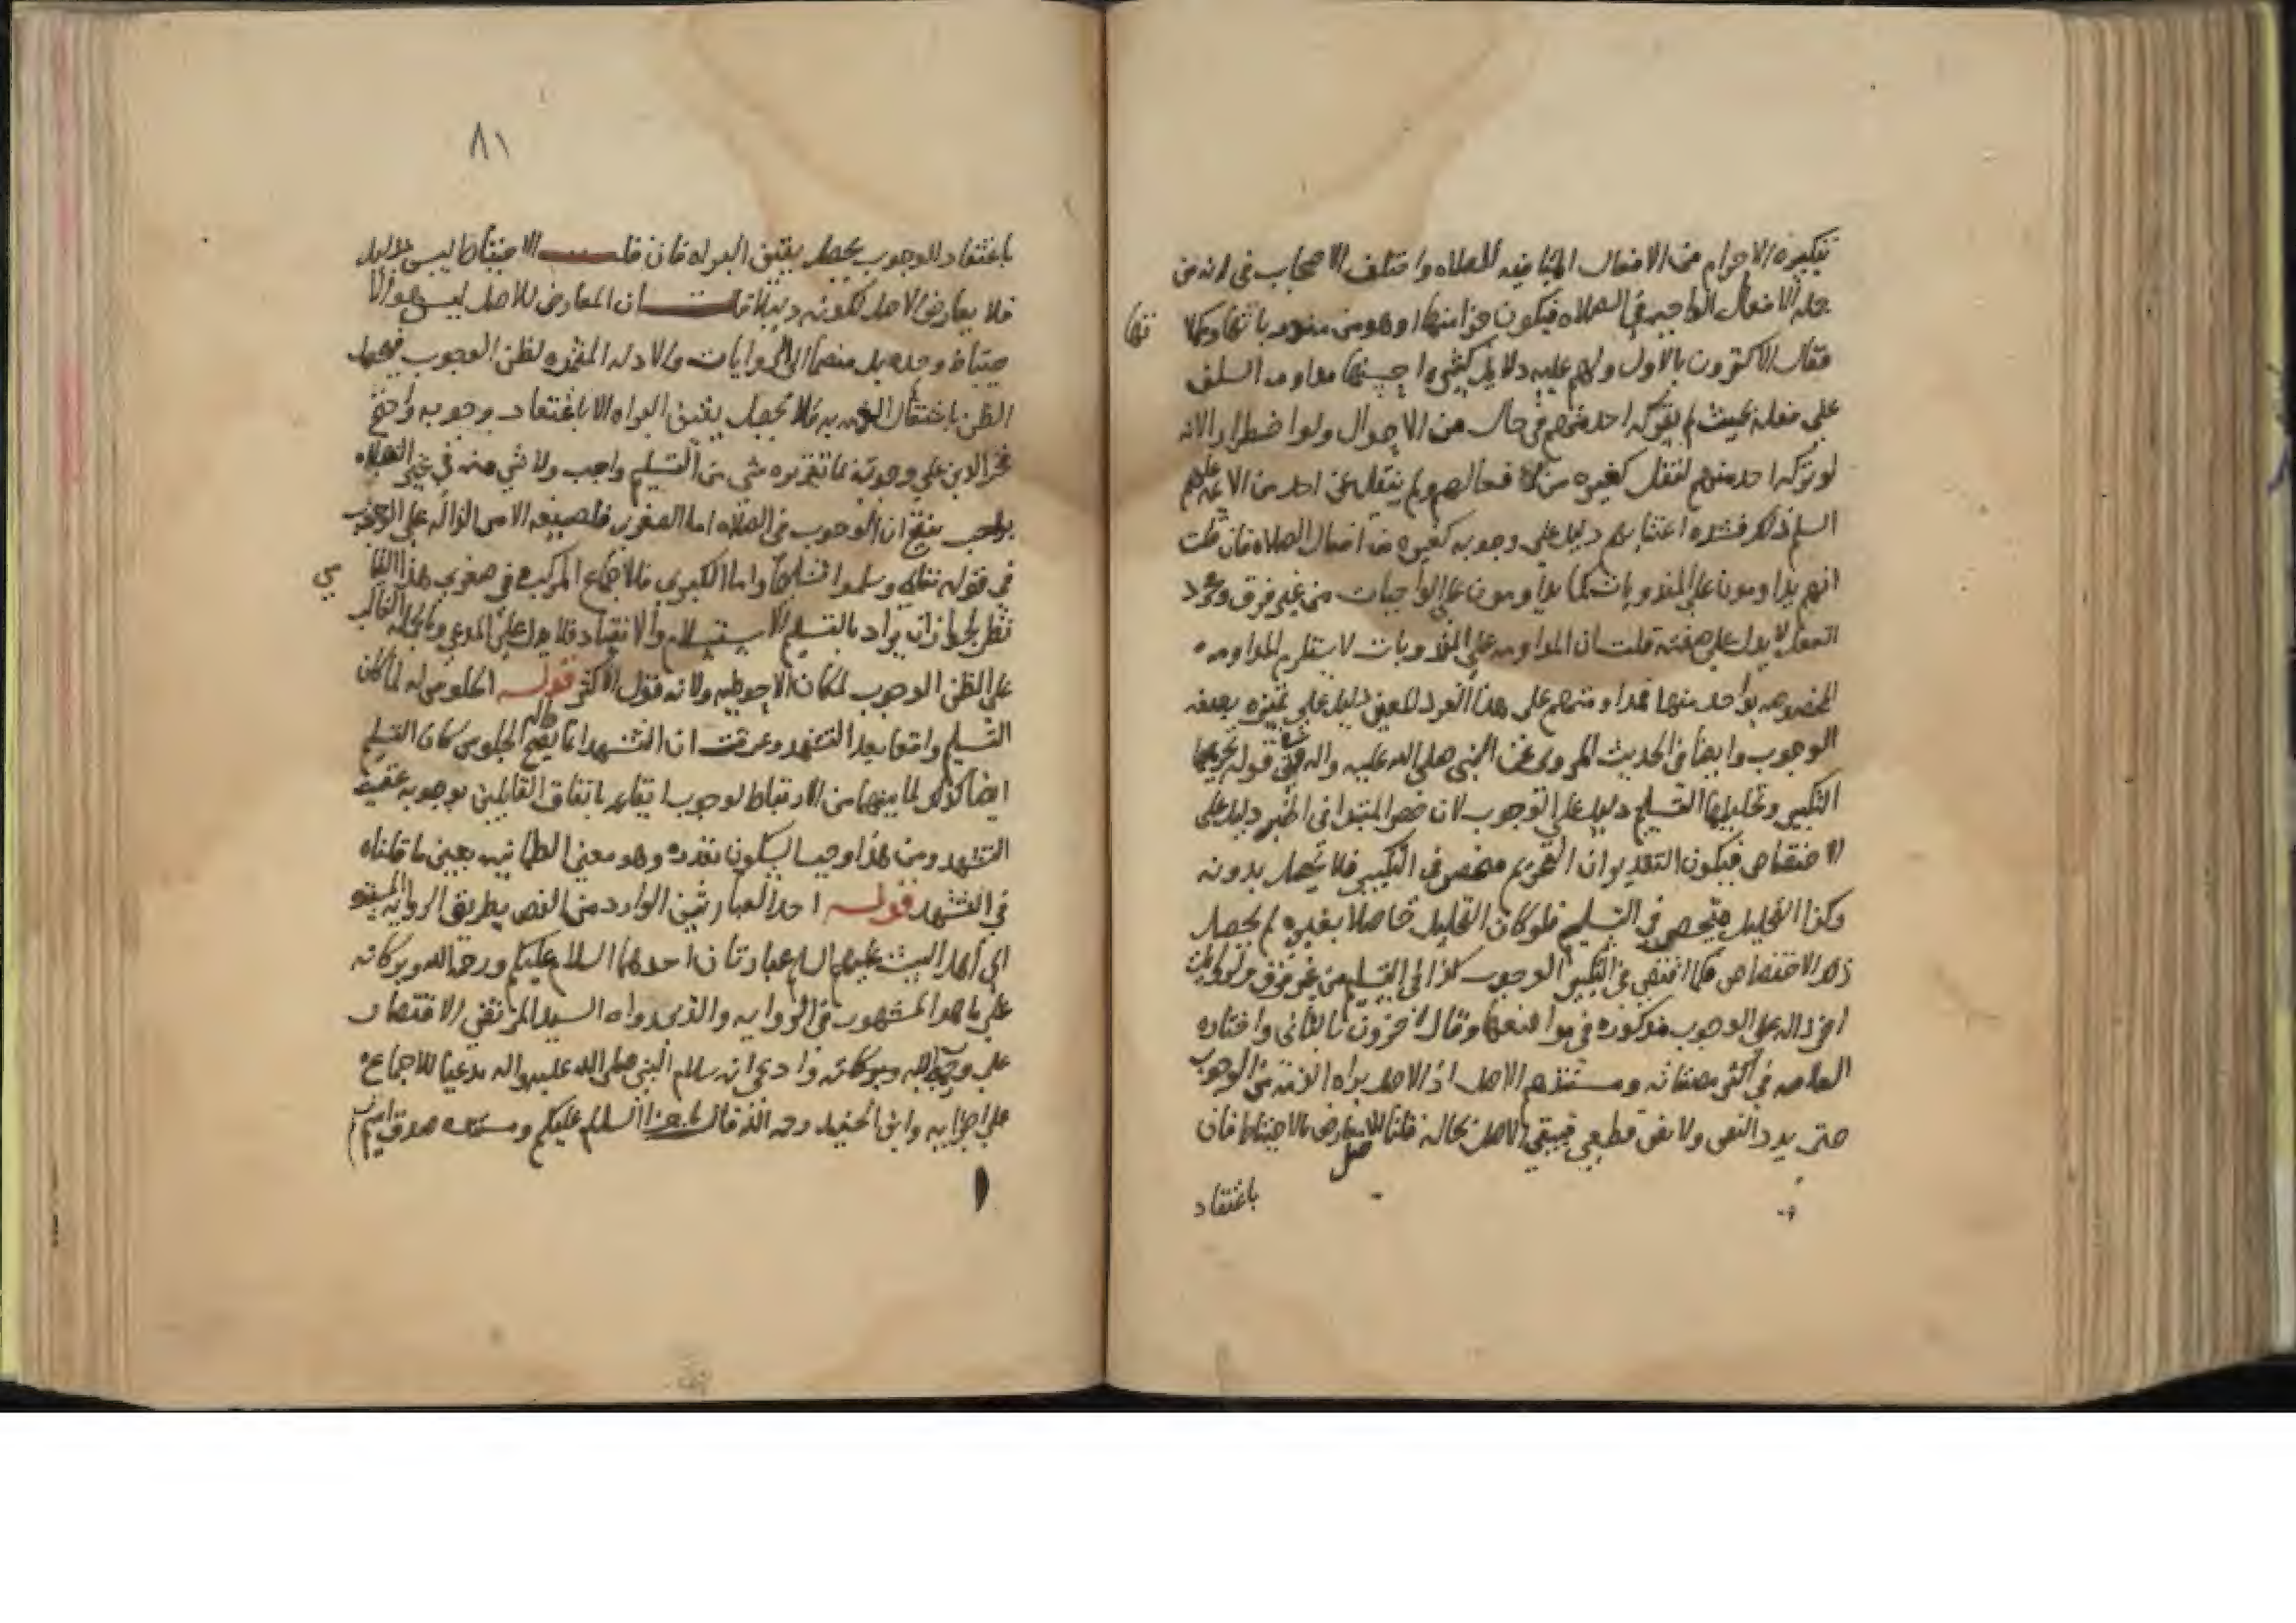 تكبيرة الاحرام من الافعال المنافيه للصلاه واختلف الاصحاب في انه من
جمله الافعال الواجبه في الصلاه فيكون جزا منها او هو من مندوباتها
فقال الاكثرون بالاول ولهم عليه دلايل كثيره احسنها مداومه السلف
على فعله بحيث لم يتركه احد منهم في حال من الاحوال ولو اضطرارا لانه
لو تركه احد منهم لنقل كغيره من افعالهم ولم ينقل عن احد من الائمه عليهم
السلم ذلك فشده اعتنايهم دليل على وجوبه كغيره من افعال الصلاه فان قلت
انهم يداومون على المندوبات كما يداومون على الواجبات من غير فرق ومجرد
الفعل لا يدل على صفته قلت ان المداومه على المندوبات لا يستلزم المداومه
المخصوصه بواحد منها فمداومتهم على هذا الفرد المعين دليل على تميزه بصفه
الوجوب وايضا في الحديث المروي عن النبي صلى الله عليه واله قوله تحريمها
التكبير وتحليلها التسليم دليل على الوجوب لان حصر المبتدا في الخبر دليل على
الاختصاص فيكون التقدير ان التحريم منحصر في التكبير فلا يحصل بدونه
وكذا التحليل منحصر في التسليم فلو كان التحليل حاصلا بغيره لم يحصل
ذلك الاختصاص فكما اقتضى في التكبير الوجوب كذا في التسليم من غير فرق
اخر داله على الوجوب مذكوره في مواضعها وقال اخرون بالثاني واختاره
العلامه في اكثر مصنفاته ومستندهم الاصل اذ الاصل براه الذمه من الوجوب
حتى يرد النص ولا نص قطعي فيبقى الاصل بحاله قلنا الاصل معارض بالاحتياط فان
باعتقاد
٨١
باعتقاد الوجوب يحصل يقين البراه فان قلت الاحتياط ليس بدليل
فلا يعارض الاصل لكونه دليلا قلت ان المعارض للاصل ليس هو الا
حتياط وحده بل منضما الى الروايات والادله المثمره لظن الوجوب فيحصل
الظن باشتغال الذمه به فلا يحصل يقين البراه الا باعتقاد وجوبه واحتج
فخر الدين على وجوبه بما تقريره شي من التسليم واجب ولا شي منه في غير الصلاه
بواجب ينتج ان الوجوب في الصلاه اما الصغرى فلصيغه الامر الداله على الوجوب
في قوله تعالى وسلموا تسليما واما الكبرى فللاجماع المركب وفي صغرى هذا القياس
نظر لجواز ان يراد بالتسليم الاستسلام والانقياد فلا يدل على المدعى وبالجمله فالغالب
على الظن الوجوب لمكان الاحوطيه ولانه قول الاكثر قوله الجلوس له لما كان
التسليم واقعا بعد التشهد وعرفت ان التشهد انما يقع حاله الجلوس كان التسليم
ايضا كذلك لما بينهما من الارتباط لوجوب ايقاعه باتفاق القايلين بوجوبه عقيب
التشهد ومن هذا وجب السكون بقدره وهو معنى الطمانينه بعين ما قلناه
في التشهد قوله احد العبارتين الوارد من النص بطريق الروايه
الى اهل البيت عليهم السلم عبارتان احدهما السلام عليكم ورحمة الله وبركاته
على ما هو المشهور في الروايه والذي رواه السيد المرتضى الاقتصار
على ورحمة الله وبركاته وادعى انه سلام النبي صلى الله عليه واله مدعيا للاجماع
على اجزايه وابن الجنيد رحمه الله قال السلم عليكم ومستنده صدق اسم